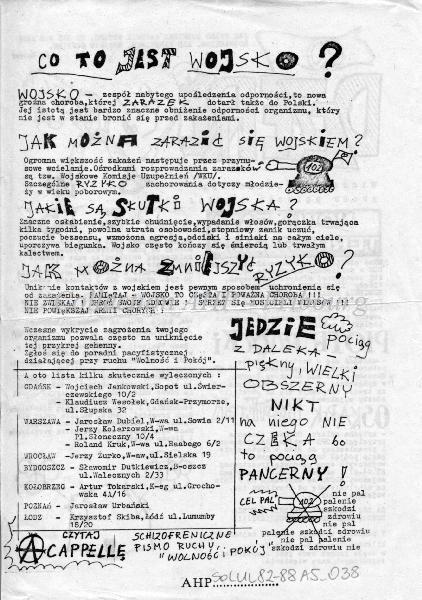 CO TO JEST WOJSKO?
WOJSKO - zespół nabytego upośledzenia odporności, to nowa
groźna choroba, której ZARAZEK dotarł także do Polski.
Jej istotą jest bardzo znaczne obniżenie odporności organizmu, który
nie jest w stanie bronić się przed zakażeniami.
JAK MOŻNA ZARAZIĆ SIĘ WOJSKIEM?
Ogromna większość zakażeń następuje przez przymu-
sowe wcielanie. Ośrodkami rozprowadzania zarazków
są tzw. Wojskowe Komisje Uzupełnień /WKU/.
Szczególne RYZYKO zachorowania dotyczy młodzie-
ży w wieku poborowym.
102
JAKIE SĄ SKUTKI WOJSKA?
Znaczne osłabienie, szybkie chudnięcie, wypadanie włosów, gorączka trwająca
kilka tygodni, powolna utrata osobowości, stopniowy zanik uczuć,
poczucie bezsensu, wzmożona agresja, odciski i siniaki na całym ciele,
uporczywa biegunka. Wojsko często kończy się śmiercią lub trwałym
kalectwem.
JAK MOŻNA ZMNIEJSZYĆ RYZYKO?
Unikanie kontaktów z wojskiem jest pewnym sposobem uchronienia się
od zakażenia. PAMIĘTAJ - WOJSKO TO CIĘŻKA I POWAŻNA CHOROBA !!!
NIE POWIĘKSZAJ ARMII CHORYCH !!!
Wczesne wykrycie zagrożenia twojego
organizmu pozwala często na uniknięcie
tej przykrej gehenny.
Zgłoś się do poradni pacyfistycznej
działającej przy ruchu "Wolność i Pokój".
A oto lista kilku skutecznie wyleczonych :
GDAŃSK - Wojciech Jankowski, Sopot ul. Świer-
czewskiego 10/2
- Klaudiusz Wesołek, Gdańsk-Przymorze,
ul. Słupska 32
WARSZAWA - Jarosław Dubiel, W-wa ul. Sowia 2/11
- Jerzy Kolarzowski, W-wa
Pl. Słoneczny 10/4
- Roland Kruk, W-wa ul. Haabego 6/2
WROCŁAW - Jerzy Żurko, W-aw, ul. Sielska 19
BYDGOSZCZ - Sławomir Dutkiewicz, B-oszcz
ul. Walecznych 2/33
KOŁOBRZEG - Artur Tokarski, K-eg ul. Grocho-
wska 4A/16
POZNAŃ - Jarosław Urbański
ŁÓDŹ - Krzysztof Skiba, Łódź ul. Lumumby
18/20
JEDZIE
pociąg
Z DALEKA -
piękny i WIELKI
OBSZERNY
NIKT
na niego NIE
CZEKA bo
to pociąg
PANCERNY!
CEL PAL
102
nie pal
palenie
szkodzi
zdrowiu
nie pal
palenie szkodzi zdrowiu
nie pal palenie
szkodzi zdrowiu nie
CZYTAJ
A CAPPELLĘ
SCHIZOFRENICZNE
PISMO RUCHU
"WOLNOŚĆ i POKÓJ"
AHP SOLUL82-88A5_038